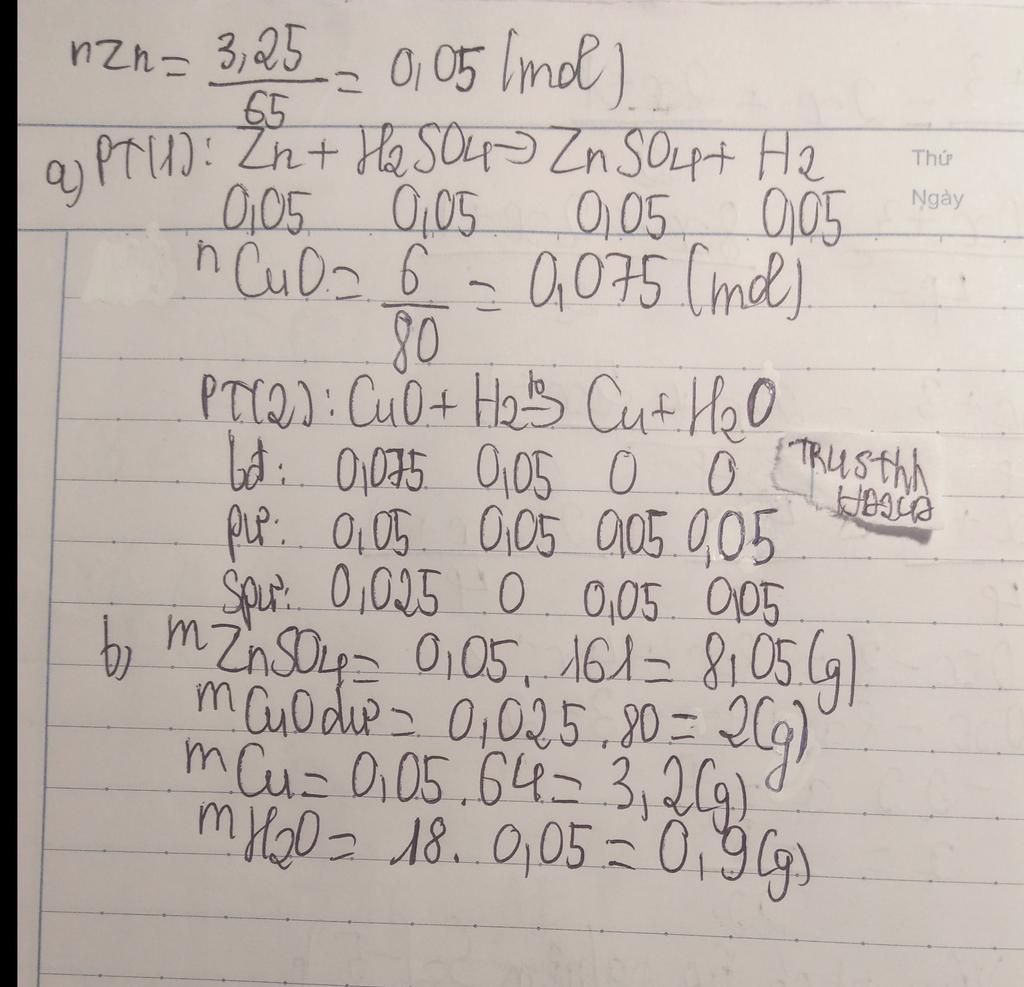 nZn = 3,25/65 = 0,05 (mol)
Thứ
a) PT(1): Zn + H2SO4 → ZnSO4 + H2
Ngày
0,05 0,05 0,05 0,05
nCuO = 6/80 = 0,075 (mol)
PT(2): CuO + H2 →(to) Cu + H2O
bđ: 0,075 0,05 0 0
TRusthh
pư: 0,05 0,05 0,05 0,05
spư: 0,025 0 0,05 0,05
b) mZnSO4 = 0,05 . 161 = 8,05 (g)
mCuO dư = 0,025 . 80 = 2 (g)
mCu = 0,05 . 64 = 3,2 (g)
mH2O = 18 . 0,05 = 0,9 (g)